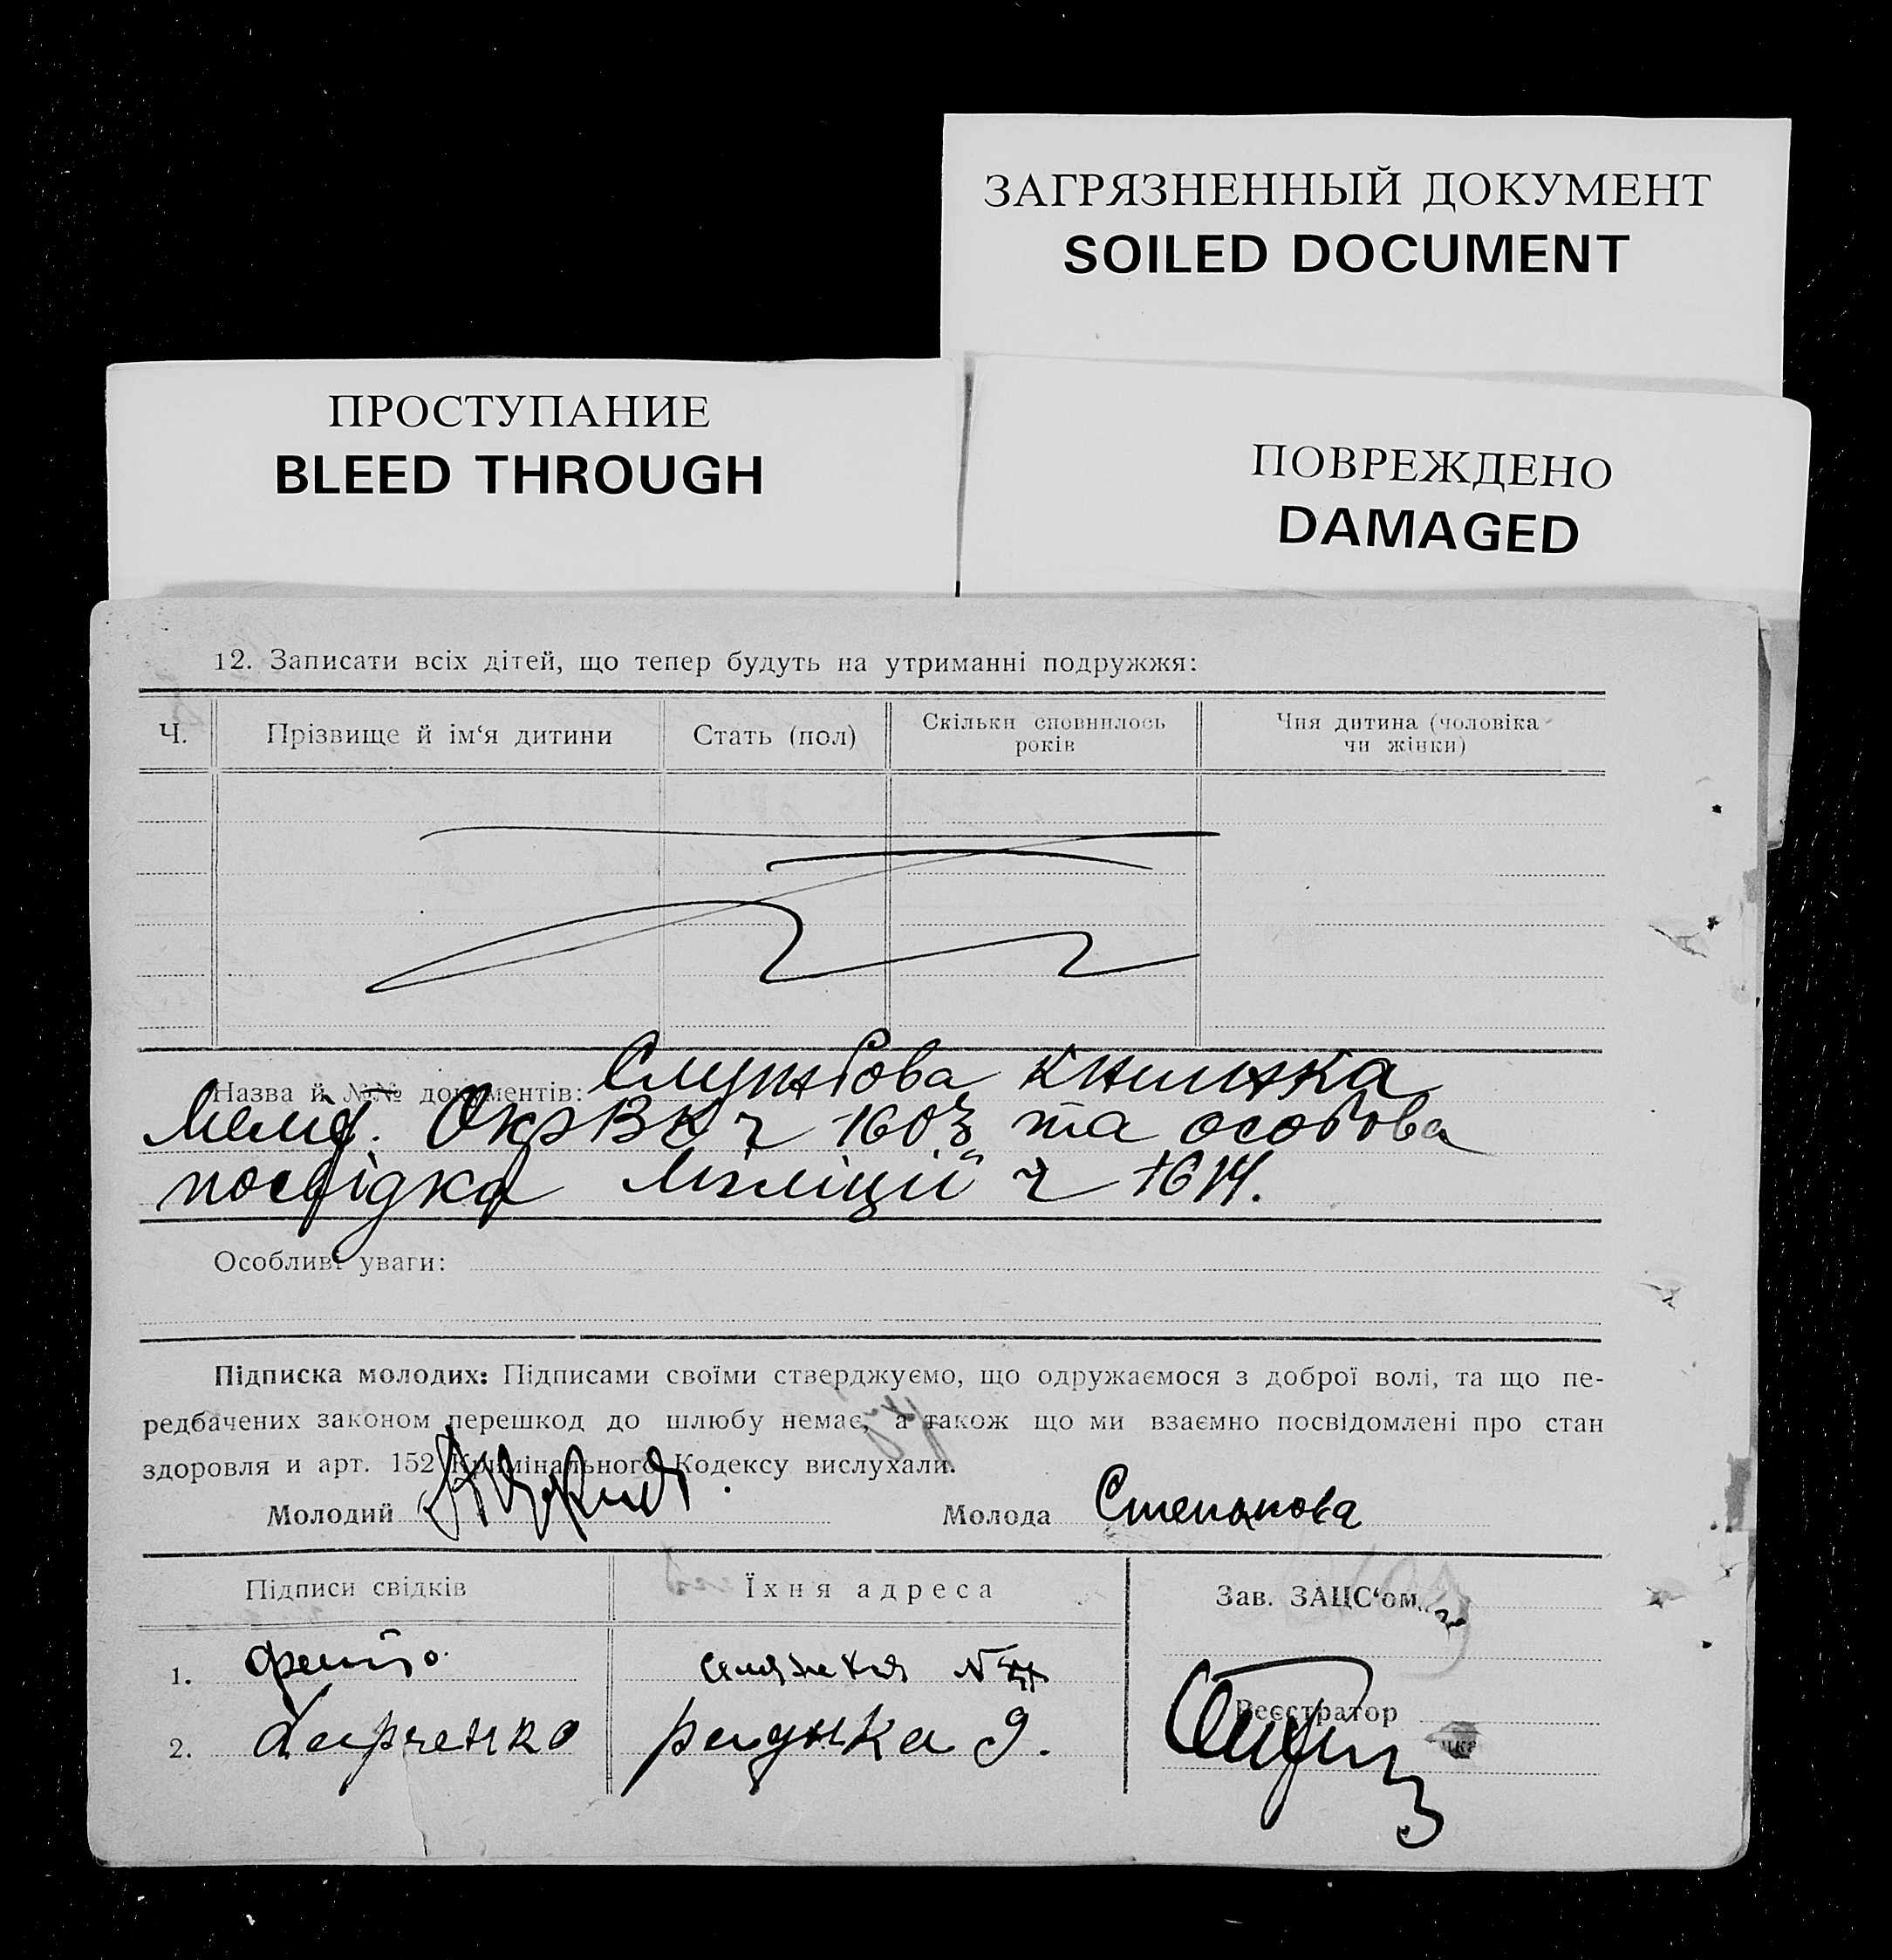 ЗАГРЯЗНЕННЫЙ ДОКУМЕНТ
SOILED DOCUMENT
ПРОСТУПАНИЕ
BLEED THROUGH
ПОВРЕЖДЕНО
DAMAGED
12. Записати всіх дітей, що тепер будуть на утриманні подружжя:
Ч. Прізвище й ім‘я дитини Стать (пол) Скільки сповнилось років Чия дитина (чоловіка чи жінки)
Назва й №№ документів: Службова книжка
ОкрВК ч 1603 та особова
посвідка Міліції ч 1614.
Особливі уваги:
Підписка молодих: Підписами своїми стверджуємо, що одружаємося з доброї волі, та що пе-
редбачених законом перешкод до шлюбу немає, а також що ми взаємно посвідомлені про стан
здоровля и арт. 152 Кримінального Кодексу вислухали.
Молодий Молода Степанова
Підписи свідків Їхня адреса Зав. ЗАЦС‘ом
1.
Реєстратор
2. 9.